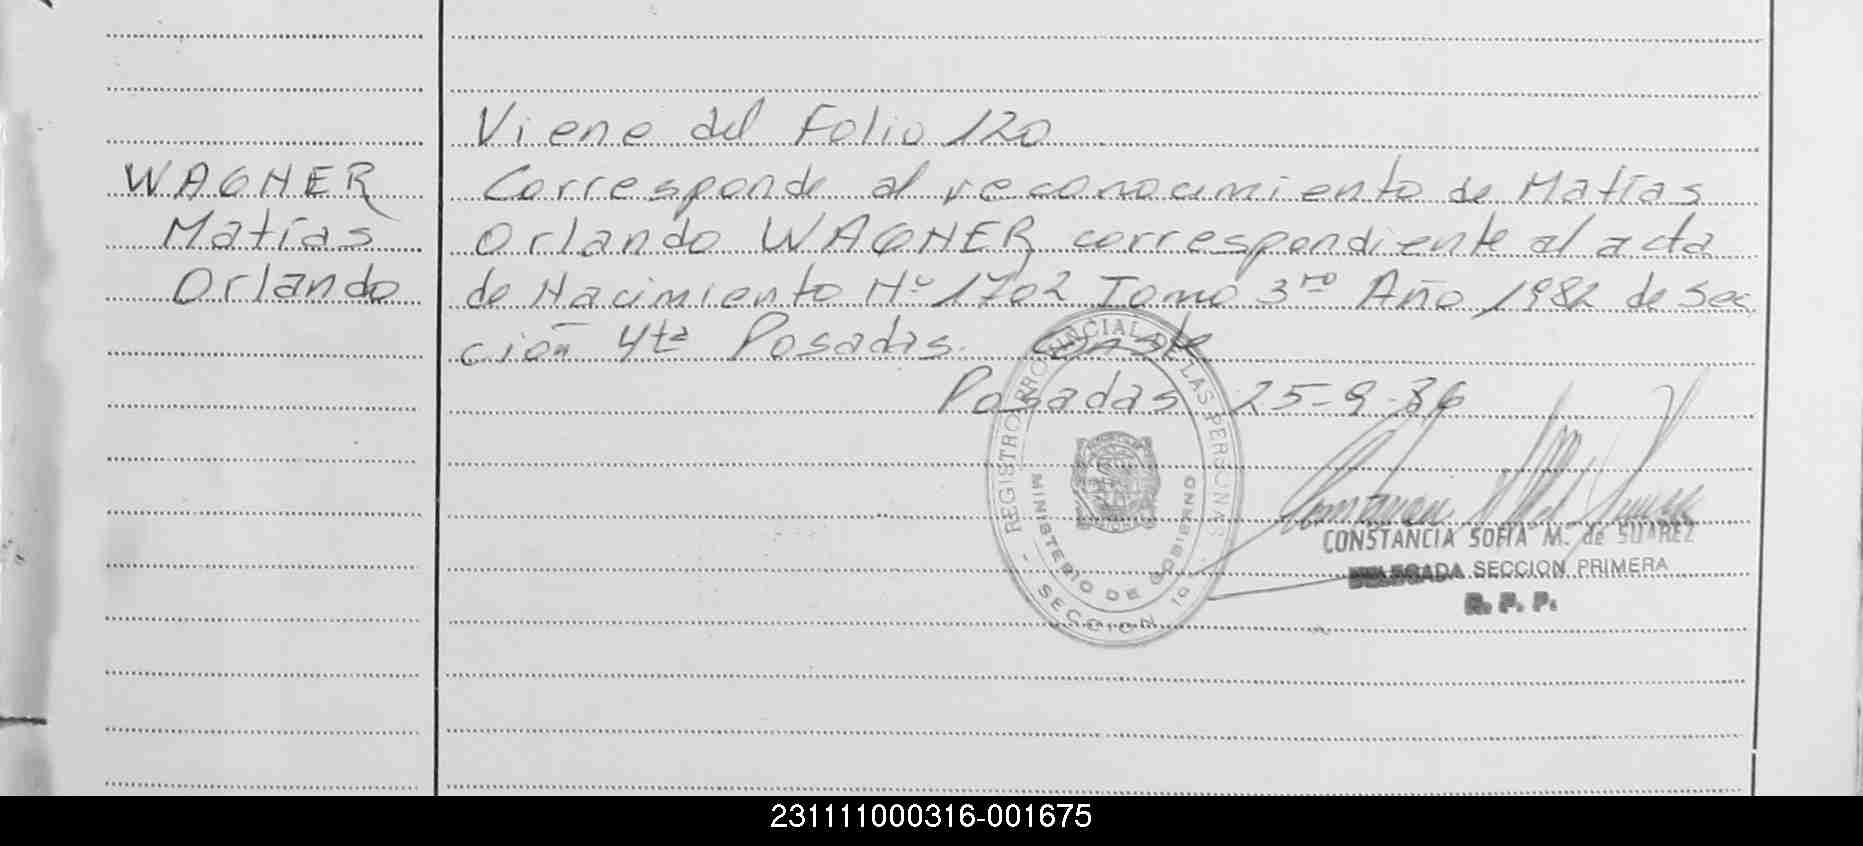 Viene del Folio 120
WAGNER
Matías
Orlando
Corresponde al reconocimiento de Matías
Orlando WAGNER correspondiente al acta
de Nacimiento Nº 1702 Tomo 3ro Año 1982 de Sec
ción 4ta Posadas. Conste
Posadas 25-9-86
REGISTRO PROVINCIAL DE LAS PERSONAS
MINISTERIO DE GOBIERNO
- SECCION 1a -
CONSTANCIA SOFIA M. de SUAREZ
DELEGADA SECCION PRIMERA
R. P. P.
231111000316-001675